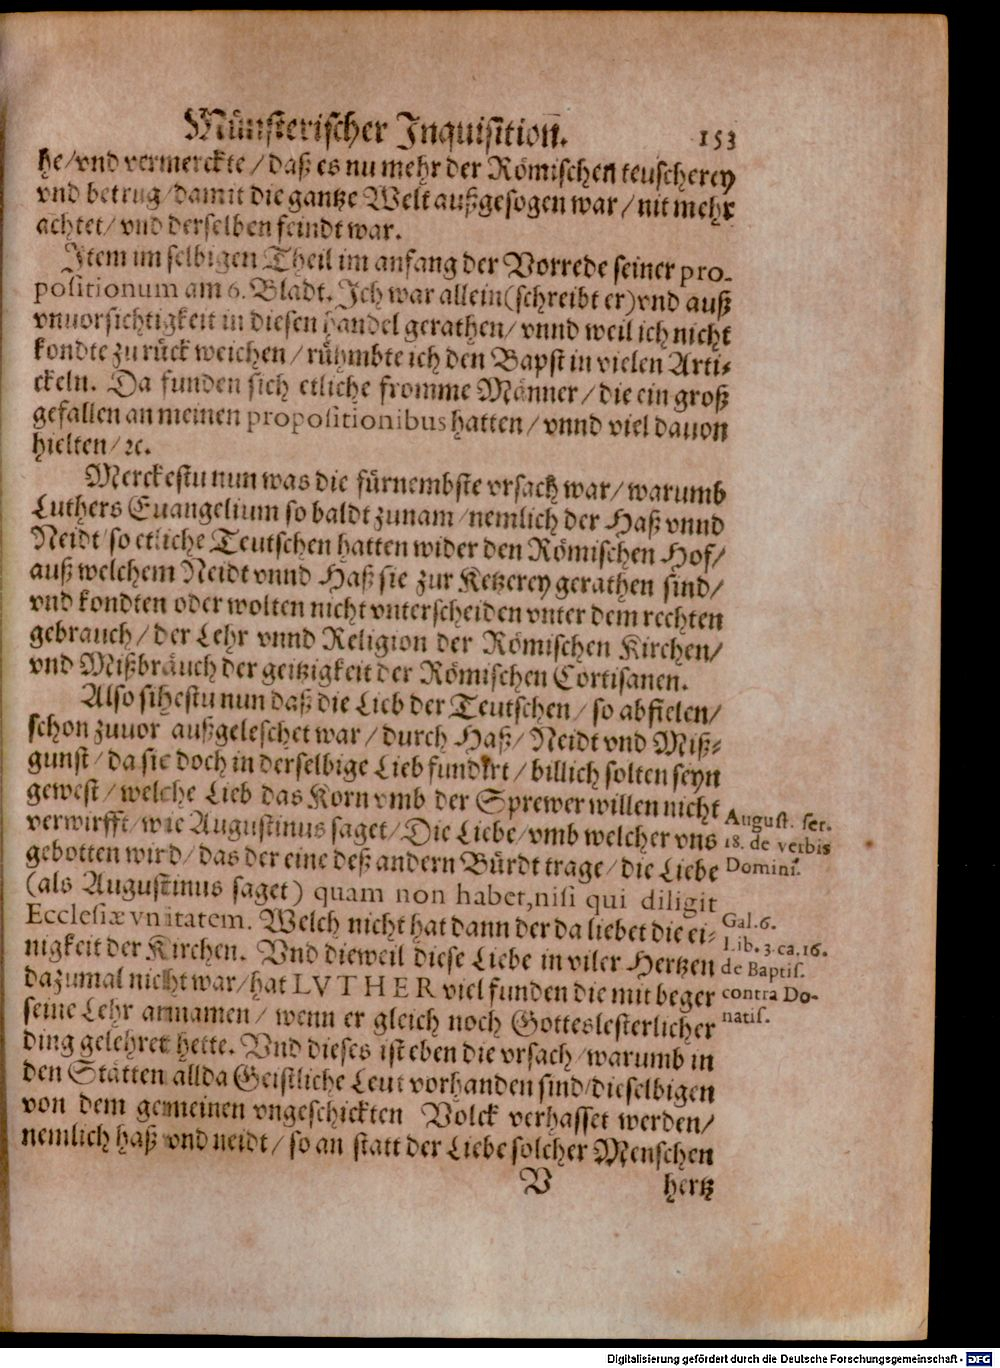 Münsterischer Inquisition̅. 153
he/vnd vermerckte/daß es nu mehr der Römischen teuscherey
vnd betrug/damit die gantze Welt außgesogen war/nit mehr
achtet/vnd derselben feindt war.
Item im selbigen Theil im anfang der Vorrede seiner pro-
positionum am 6. Bladt. Ich war allein(schreibt er)vnd auß
vnuorsichtigkeit in diesen handel gerathen/vnnd weil ich nicht
kondte zu rück weichen/rühmbte ich den Bapst in vielen Arti-
ckeln. Da funden sich etliche fromme Männer/die ein groß
gefallen an meinen propositionibus hatten/vnnd viel dauon
hielten/ꝛc.
Merckestu nun was die fürnembste vrsach war/warumb
Luthers Euangelium so baldt zunam/nemlich der Haß vnnd
Neidt/so etliche Teutschen hatten wider den Römischen Hof/
auß welchem Neidt vnnd Haß sie zur Ketzerey gerathen sind/
vnd kondten oder wolten nicht vnterscheiden vnter dem rechten
gebrauch/der Lehr vnnd Religion der Römischen Kirchen/
vnd Mißbräuch der geitzigkeit der Römischen Cortisanen.
Also sihestu nun daß die Lieb der Teutschen/so abfielen/
schon zuuor außgeleschet war/durch Haß/Neidt vnd Miß-
gunst/da sie doch in derselbige Lieb fundirt/billich solten seyn
gewest/welche Lieb das Korn vmb der Sprewer willen nicht
verwirfft/wie Augustinus saget/Die Liebe/vmb welcher vns
gebotten wird/das der eine deß andern Bürdt trage/die Liebe
(als Augustinus saget) quam non habet,nisi qui diligit
Ecclesiæ vnitatem. Welch nicht hat dann der da liebet die ei-
nigkeit der Kirchen. Vnd dieweil diese Liebe in viler Hertzen
dazumal nicht war/hat LVTHER viel funden die mit beger
seine Lehr annamen/wenn er gleich noch Gotteslesterlicher
ding gelehret hette. Vnd dieses ist eben die vrsach/warumb in
den Stätten allda Geistliche Leut vorhanden sind/dieselbigen
von dem gemeinen vngeschickten Volck verhasset werden/
nemlich haß vnd neidt/so an statt der Liebe solcher Menschen
V hertz
August. ser.
18. de verbis
Domini.
Gal.6.
Lib.3.ca.16.
de Baptis.
contra Do-
natis.
Digitalisierung gefördert durch die Deutsche Forschungsgemeinschaft - DFG